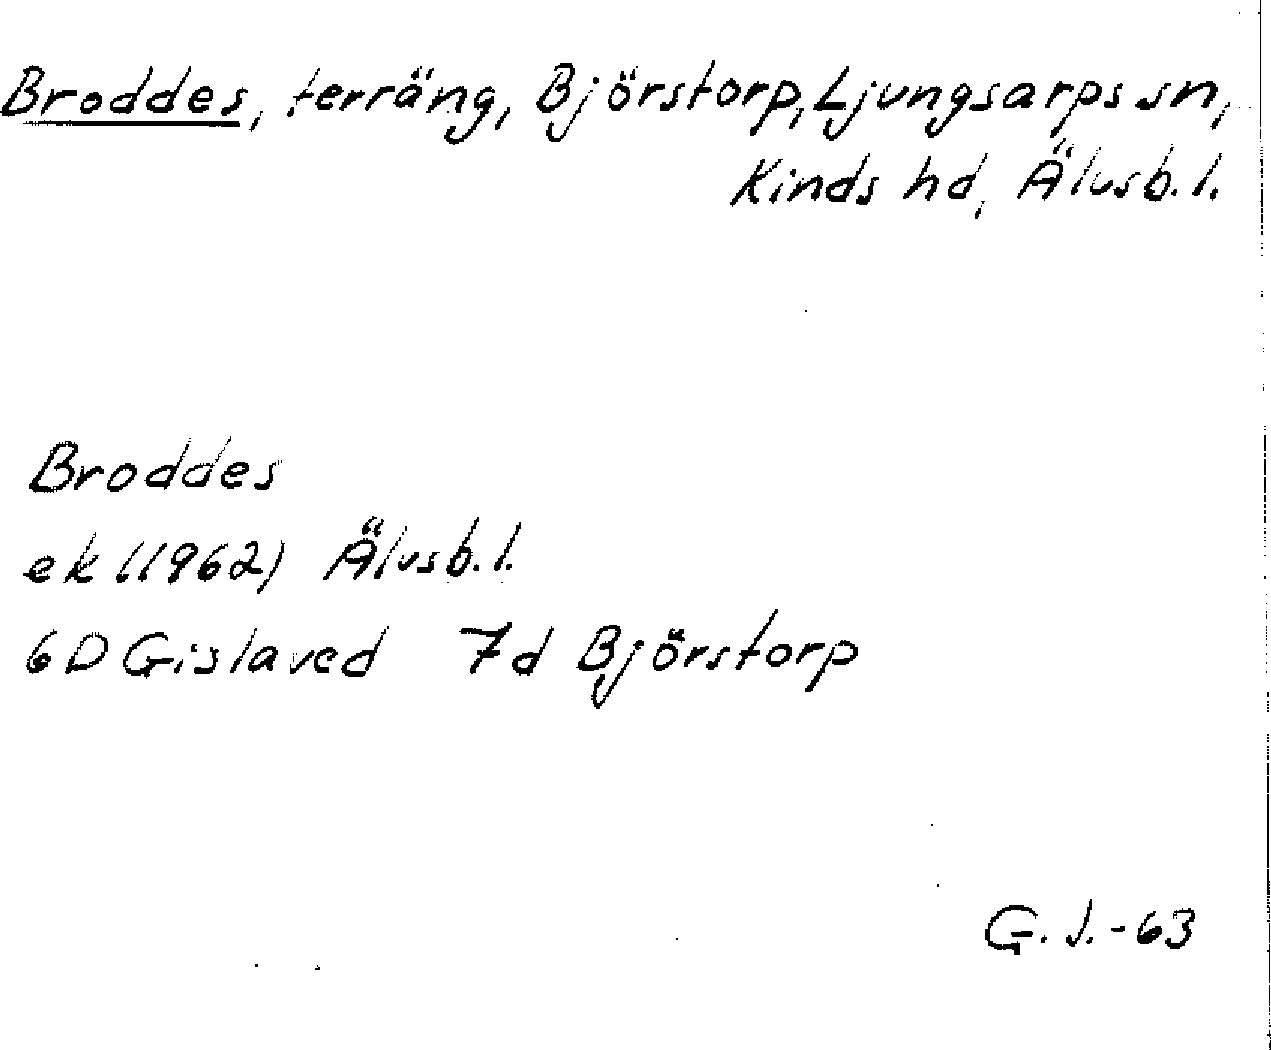 Broddes, terräng, Björstorp, Ljungsarps sn,
Kinds hd, Älvsb. l.
Broddes
ek (1962) Älvsb. l.
6D Gislaved 7d Björstorp
G. J. - 63